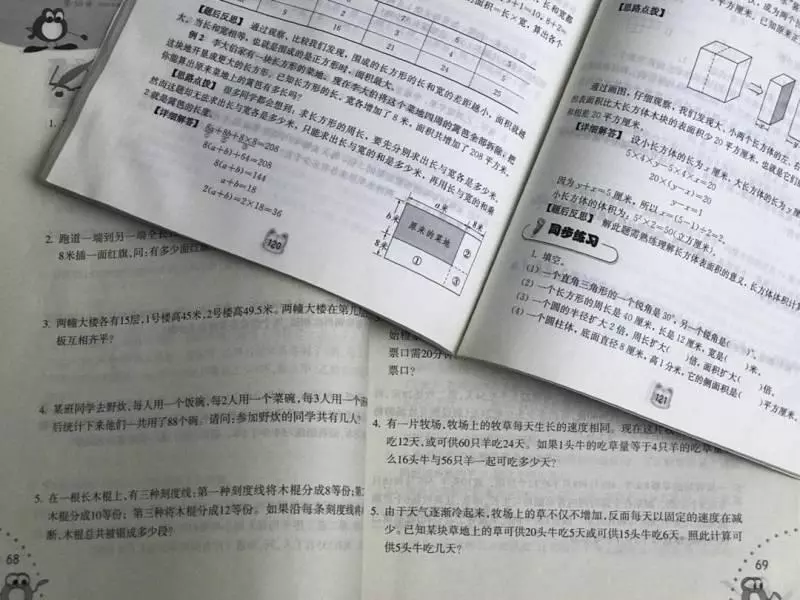 面积=长×宽,算出各个
【题后反思】 通过观察、比较我们发现,围成的长方形的长和宽的差距越小,面积就越
大。当长和宽相等,也就是围成的是正方形时,面积最大。
例2 李大伯家有一块长方形的菜地。现在李大伯将这个菜地四周的篱笆全部拆除,把
这块地开垦成更大的长方形。已知长方形的长、宽各增加了8米,面积共增加了208平方米。
你能算出原来菜地上的篱笆有多长吗?
【思路点拨】 很多同学都会想到:求长方形的周长,要先分别求出长与宽各是多少米。
然而这题却无法求出长与宽各是多少米,只能求出长与宽的和是多少米,再用长与宽的和乘
2就是篱笆的长度。
【详细解答】
8a+8b+8×8=208
8(a+b)+64=208
8(a+b)=144
a+b=18
2(a+b)=2×18=36
a米
8米
b米
8米
原来的菜地
①
②
③
120
【思路点拨】
通过画图,仔细观察,我们发现大、小两个长方体的左、右
的表面积比大长方体木块的表面积少20平方厘米,也就是它们
和相差20平方厘米。
【详细解答】 设小长方体的长为x厘米,大长方体的长为y厘米
5×4×y-5×4×x=20
20×(y-x)=20
y-x=1
因为y+x=5厘米,所以x=(5-1)÷2=2。
小长方体的体积为:5²×2=50(立方厘米)。
【题后反思】 解此题需熟练理解长方体表面积的意义,长方体体积计算
同步练习
1. 填空。
(1) 一个直角三角形的一个锐角是30°,另一个锐角是( )°。
(2) 一个长方形的周长是40厘米,长是12厘米,宽是( )米。
(3) 一个圆的半径扩大2倍,周长扩大( )倍,面积扩大( )倍。
(4) 一个圆柱体,底面直径8厘米,高1分米,它的侧面积是( )平方厘米,
121
1.
2. 跑道一端到另一端全长
8米插一面红旗,问:有多少面红旗
3. 两幢大楼各有15层,1号楼高45米,2号楼高49.5米。两幢大楼在第几层
板互相齐平?
4. 某班同学去野炊,每人用一个饭碗,每2人用一个菜碗,每3人用一个
后统计下来他们一共用了88个碗。请问:参加野炊的同学共有几人?
5. 在一根长木棍上,有三种刻度线:第一种刻度线将木棍分成8等份;第
木棍分成10等份; 第三种将木棍分成12等份。如果沿每条刻度线将
断,木棍总共被锯成多少段?
68
始检
票口需20分
票口?
4. 有一片牧场,牧场上的牧草每天生长的速度相同。现在这片
吃12天,或可供60只羊吃24天。如果1头牛的吃草量等于4只羊的吃草量
么16头牛与56只羊一起可吃多少天?
5. 由于天气逐渐冷起来,牧场上的草不仅不增加,反而每天以固定的速度在减
少。已知某块草地上的草可供20头牛吃5天或可供15头牛吃6天。照此计算可
供5头牛吃几天?
69